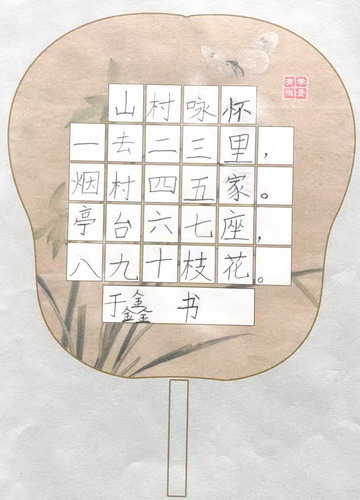 山村咏怀
一去二三里，
烟村四五家。
亭台六七座，
八九十枝花。
于鑫 书